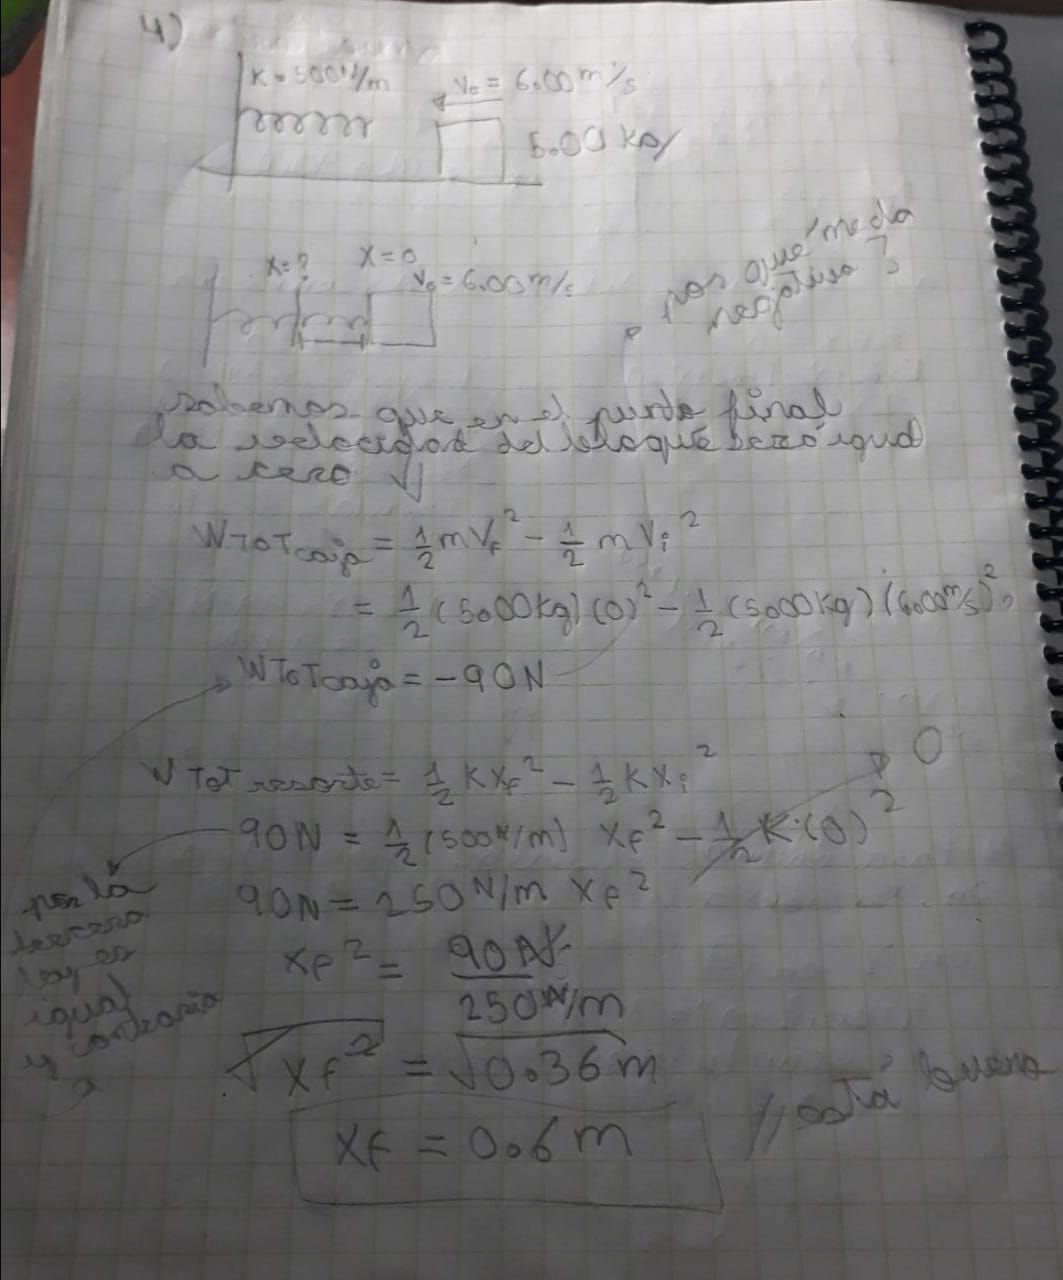 4)
K = 500N/m
V₀ = 6.00 m/s
5.00 kg
x=? x=0
V₀ = 6.00 m/s
por qué me da
negativo?
sabemos que en el punto final
la velocidad del bloque será igual
a cero
WTOTcaja = 1/2 mVf² - 1/2 mVi²
= 1/2 (5.000kg)(0)² - 1/2 (5.000kg)(6.00m/s)²
WTOTcaja = -90N
WTOT resorte = 1/2 KXf² - 1/2 KXi²
0
90N = 1/2 (500N/m) Xf² - 1/2 K·(0)²
90N = 250N/m Xf²
por la
tercera
ley es
igual
y contraria
a
Xf² = 90N / 250N/m
√Xf² = √0.36m
Xf = 0.6m
// está buena